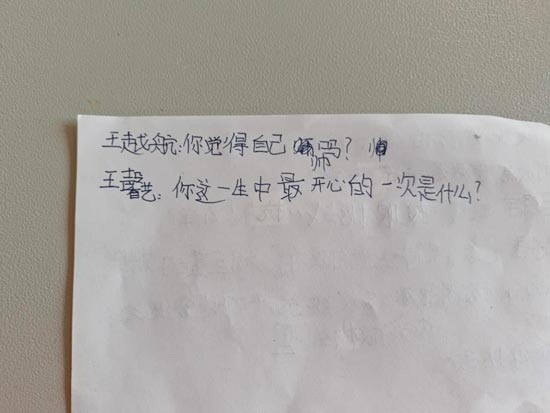 王越航:你觉得自己帅吗?帅
王馨艺:你这一生中最开心的一次是什么?